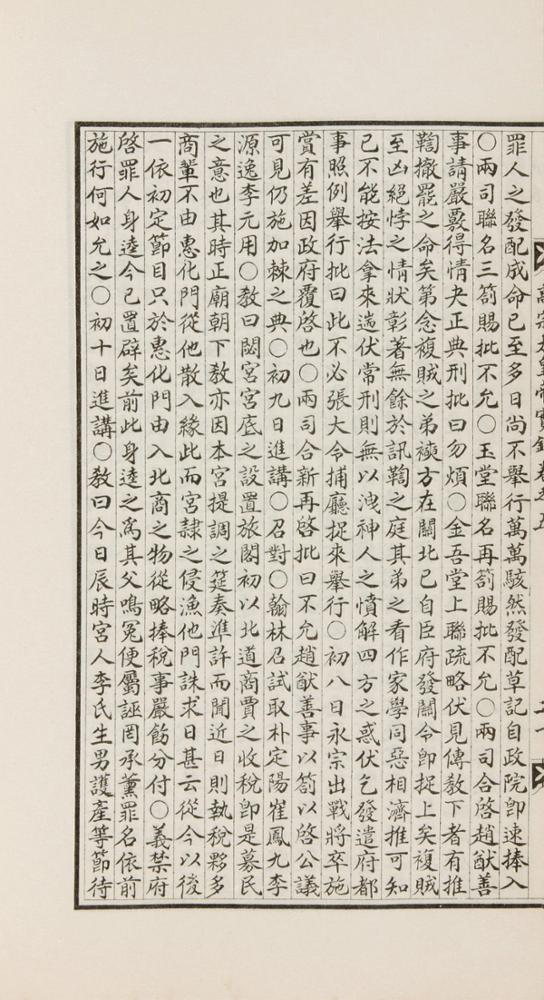 高宗太皇帝實錄卷之五
罪人之發配成命已至多日尚不舉行萬萬駭然發配草記自政院卽速捧入
○兩司聯名三箚賜批不允○玉堂聯名再箚賜批不允○兩司合啓趙猷善
事請嚴覈得情夬正典刑批曰勿煩○金吾堂上聯疏略伏見傳敎下者有推
鞫撤罷之命矣第念複賊之弟𧝓方在關北已自臣府發關今卽捉上矣複賊
至凶絕悖之情狀彰著無餘於訊鞫之庭其弟之看作家學同惡相濟推可知
已不能按法拿來遄伏常刑則無以洩神人之憤解四方之惑伏乞發遣府都
事照例舉行批曰此不必張大令捕廳捉來舉行○初八日永宗出戰將卒施
賞有差因政府覆啓也○兩司合新再啓批曰不允趙猷善事以箚以啓公議
可見仍施加棘之典○初九日進講○召對○翰林召試取朴定陽崔鳳九李
源逸李元用○敎曰閟宮宮底之設置旅閣初以北道商賈之收稅卽是募民
之意也其時正廟朝下敎亦因本宮提調之筵奏準許而聞近日則執稅夥多
商輩不由惠化門從他散入緣此而宮隷之侵漁他門誅求日甚云從今以後
一依初定節目只於惠化門由入北商之物從略捧稅事嚴飭分付○義禁府
啓罪人身逵今已置辟矣前此身逵之爲其父鳴冤便屬誣罔承薰罪名依前
施行何如允之○初十日進講○敎曰今日辰時宮人李氏生男護產等節待